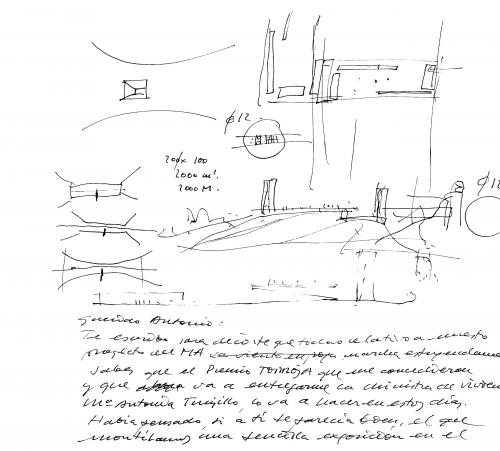 ϕ12
200 x 100
2000 m².
2000 M.
ϕ12
Querido Antonio:
Te escribo para decirte que todo relativo a nuestro
proyecto del MA va viento en popa marcha estupendamente
Sabes que el Premio TORROJA que me concedieron
y que va a entregarme la ministra de Vivien
Mª Antonia Trujillo, lo va a hacer en estos días.
Había pensado, si a ti te parecía bien, el que
montáramos una sencilla exposición en el